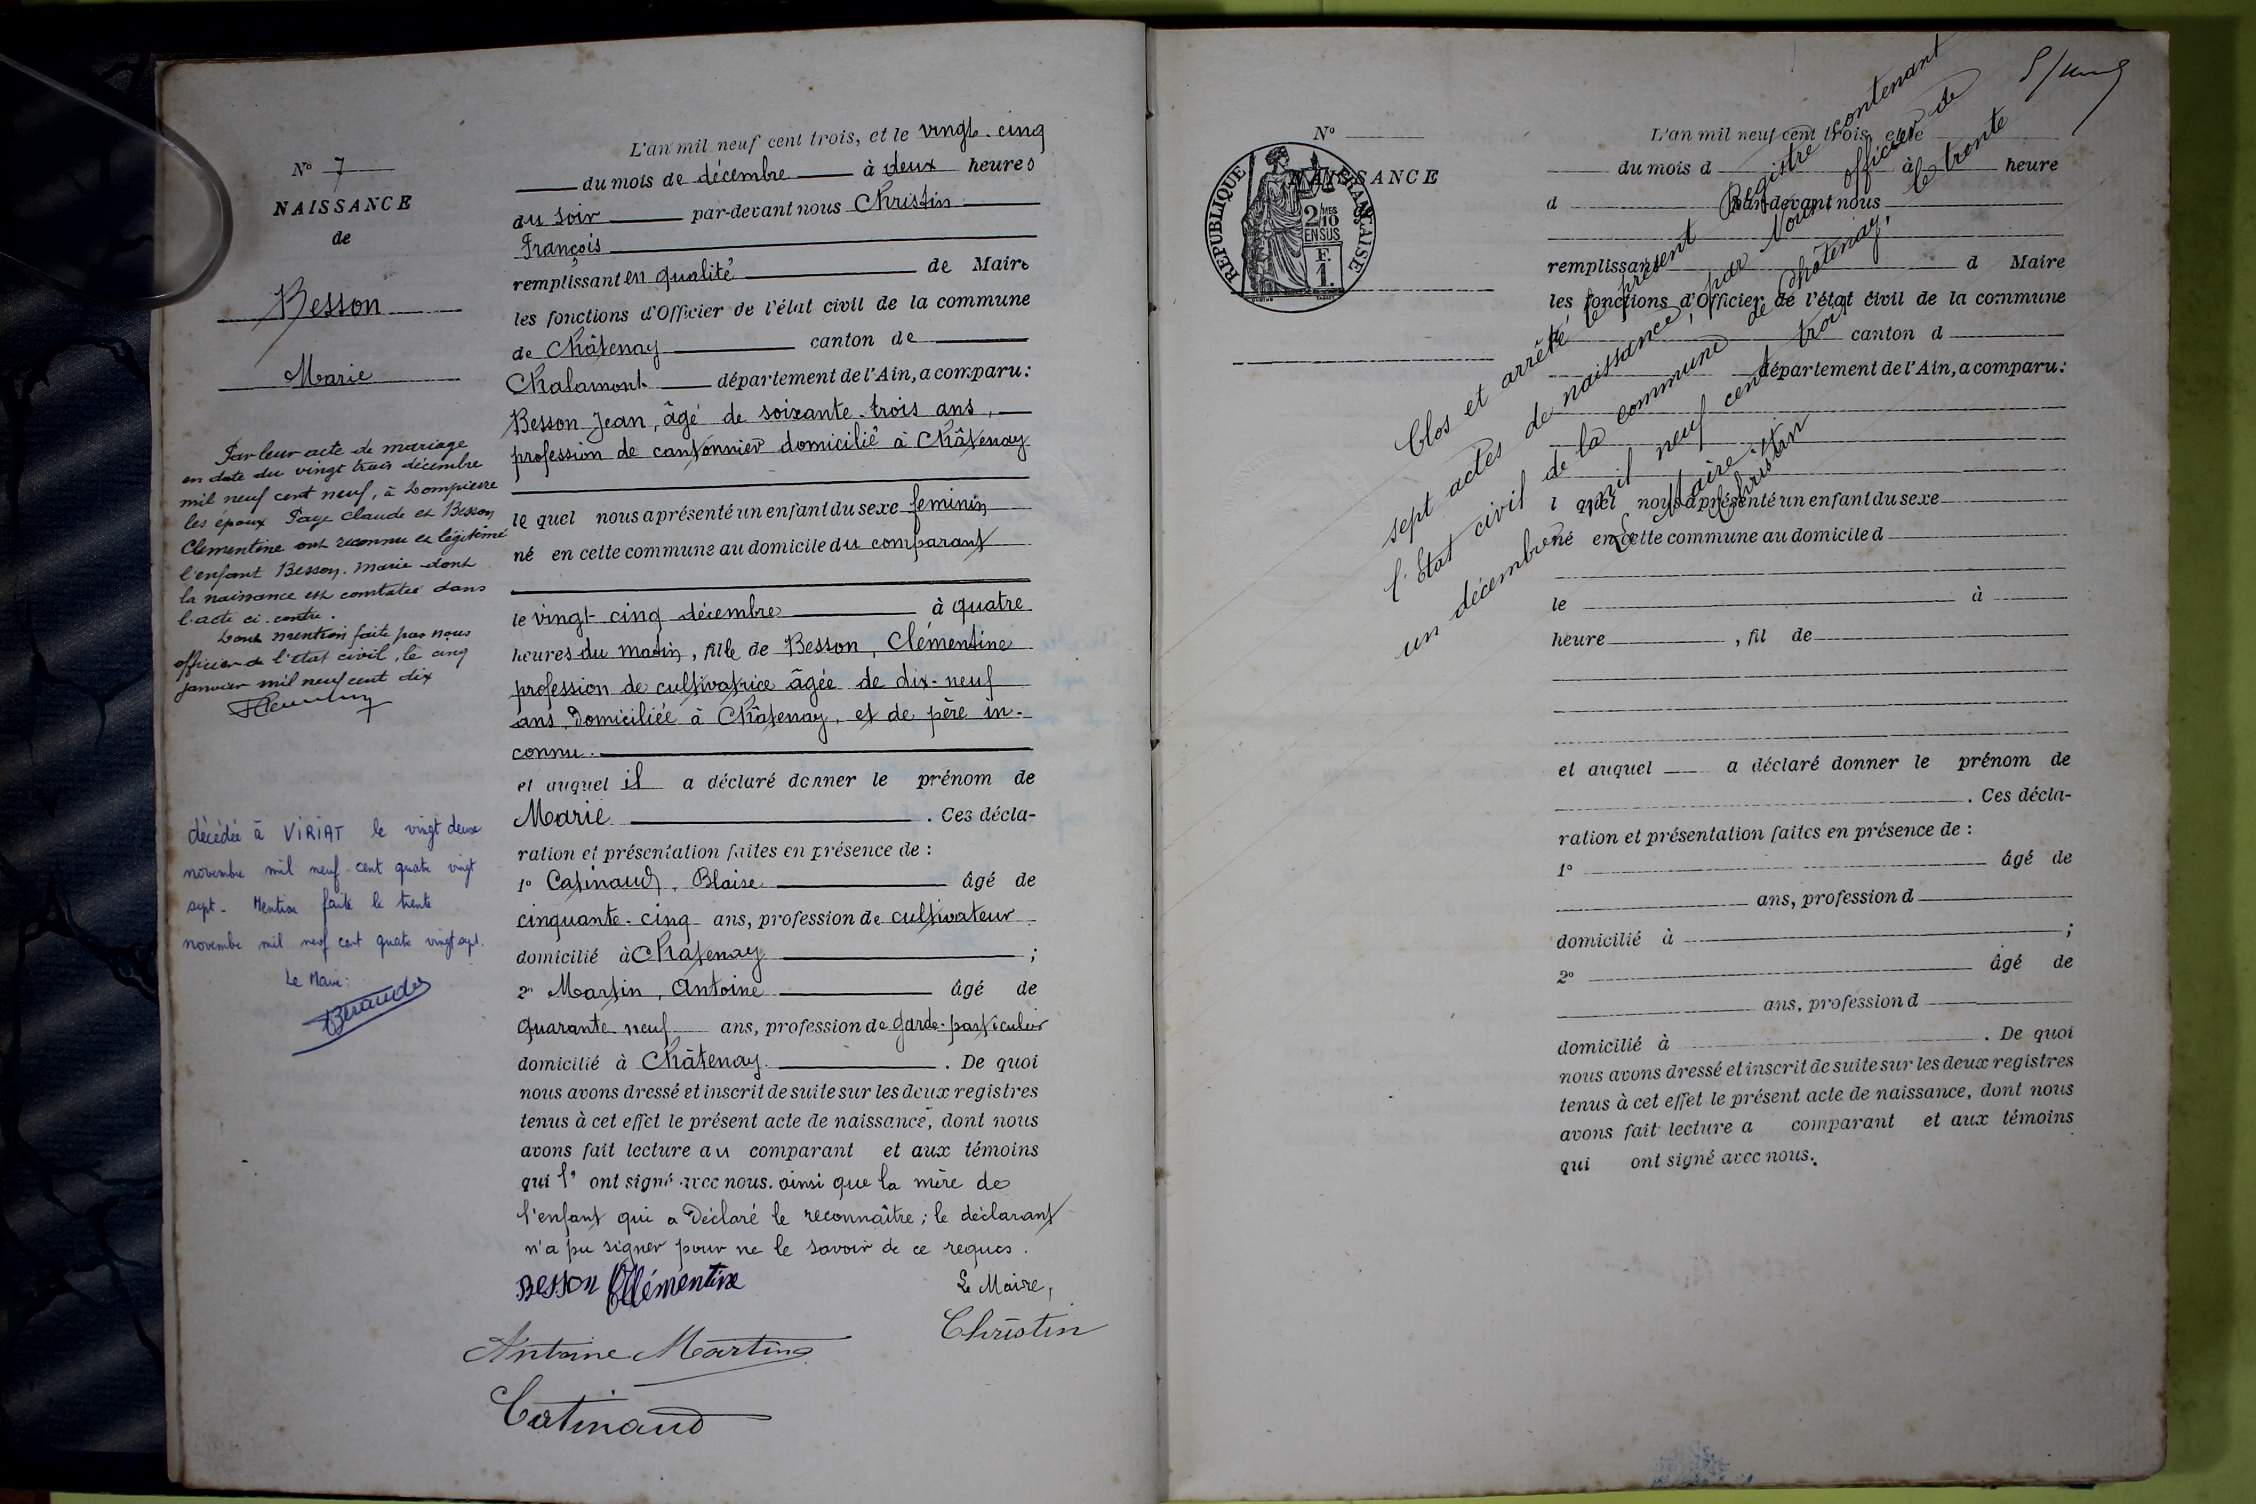 N° 7
NAISSANCE
de
Besson
Marie
Par leur acte de mariage
en date du vingt trois décembre
mil neuf cent neuf, à Dompierre
les époux Page Claude et Besson
Clementine ont reconnu et légitimé
l'enfant Besson. Marie dont
la naissance est constatée dans
l'acte ci-contre.
Dont mention faite par nous
officier de l'état civil, le cinq
janvier mil neuf cent dix
décédée à VIRIAT le vingt deux
novembre mil neuf cent quatre vingt
sept. Mention faite le trente
novembre mil neuf cent quatre vingt sept.
Le Maire:
L'an mil neuf cent trois, et le vingt-cinq
du mois de décembre à deux heures
du soir par-devant nous Christin
François
remplissant en qualité de Maire
les fonctions d'Officier de l'état civil de la commune
de Châtenay canton de
Chalamont département de l'Ain, a comparu:
Besson Jean, âgé de soixante-trois ans,
profession de cantonnier domicilié à Châtenay
le quel nous a présenté un enfant du sexe feminin
né en cette commune au domicile du comparant
le vingt-cinq décembre à quatre
heures du matin, fille de Besson, Clémentine
profession de cultivatrice âgée de dix-neuf
ans, domiciliée à Châtenay, et de père in-
connu.
et auquel il a déclaré donner le prénom de
Marie . Ces décla-
ration et présentation faites en présence de :
1° Catinaud, Blaise âgé de
cinquante-cinq ans, profession de cultivateur
domicilié à Châtenay ;
2° Martin, Antoine âgé de
quarante neuf ans, profession de garde-particulier
domicilié à Châtenay . De quoi
nous avons dressé et inscrit de suite sur les deux registres
tenus à cet effet le présent acte de naissance, dont nous
avons fait lecture au comparant et aux témoins
qui l' ont signé avec nous. ainsi que la mère de
l'enfant qui a déclaré le reconnaître; le déclarant
n'a pu signer pour ne le savoir de ce requis.
Besson Clémentine
Le Maire,
Christin
Antoine Martin
Catinaud
N°
NAISSANCE
REPUBLIQUE FRANÇAISE
2/MES
10
EN SUS
F.
1.
L'an mil neuf cent trois, et le
du mois d à heure
d par-devant nous
remplissant d Maire
les fonctions d'Officier de l'état civil de la commune
canton d
département de l'Ain, a comparu:
l quel nous a présenté un enfant du sexe
né en cette commune au domicile d
le à
heure , fil de
et auquel a déclaré donner le prénom de
. Ces décla-
ration et présentation faites en présence de :
1° âgé de
ans, profession d
domicilié à ;
2° âgé de
ans, profession d
domicilié à . De quoi
nous avons dressé et inscrit de suite sur les deux registres
tenus à cet effet le présent acte de naissance, dont nous
avons fait lecture a comparant et aux témoins
qui ont signé avec nous.
Clos et arrêté le présent Registre contenant
sept actes de naissance, par Nous, officier de
l'Etat civil de la commune de Châtenay, le trente
un décembre mil neuf cent trois
Le Maire
Christin